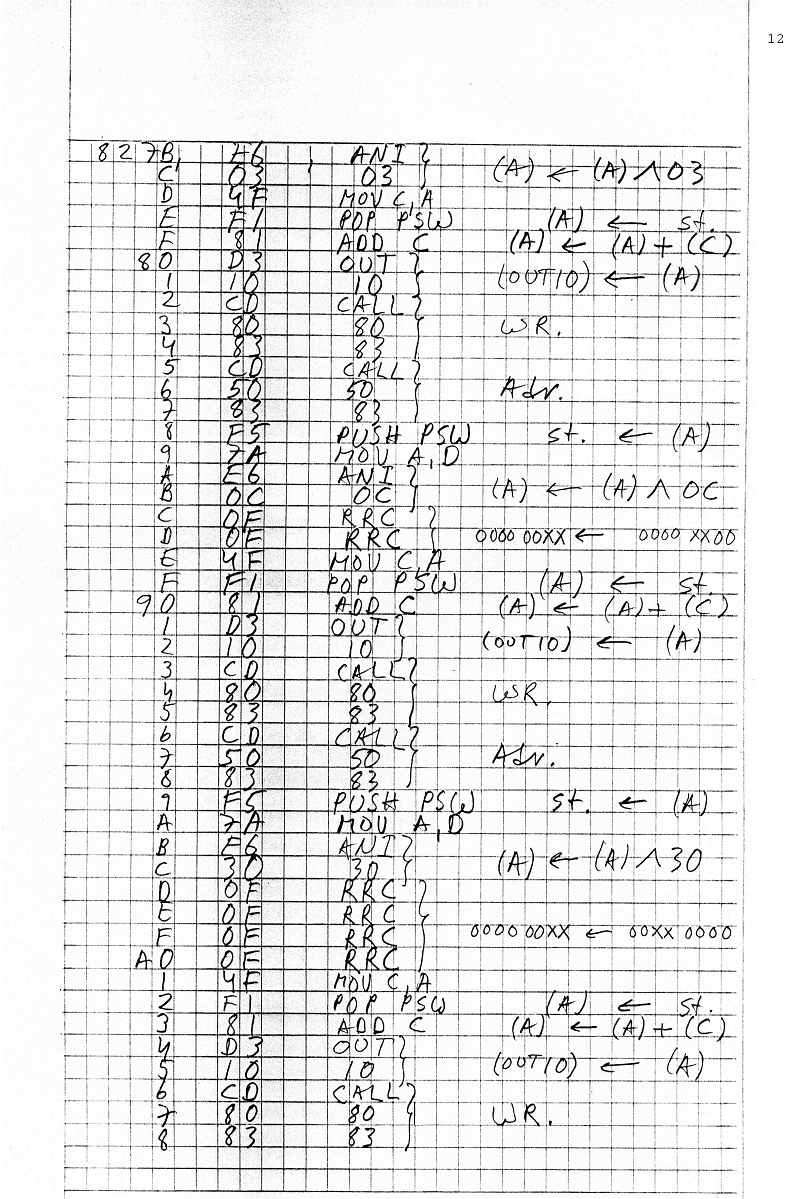 12
827B, E6 , ANI } (A) ← (A) ∧ 03
C 03 03
D 4F MOV C,A
E F1 POP PSW (A) ← st.
F 81 ADD C (A) ← (A) + (C)
80 D3 OUT } (OUT10) ← (A)
1 10 10
2 CD CALL }
3 80 80 WR.
4 83 83
5 CD CALL }
6 50 50 Adr.
7 83 83
8 F5 PUSH PSW st. ← (A)
9 7A MOV A,D
A E6 ANI } (A) ← (A) ∧ 0C
B 0C 0C
C 0F RRC }
D 0F RRC 0000 00XX ← 0000 XX00
E 4F MOV C,A
F F1 POP PSW (A) ← st.
90 81 ADD C (A) ← (A) + (C)
1 D3 OUT }
2 10 10 (OUT10) ← (A)
3 CD CALL }
4 80 80 WR.
5 83 83
6 CD CALL }
7 50 50 Adr.
8 83 83
9 F5 PUSH PSW st. ← (A)
A 7A MOV A,D
B E6 ANI }
C 30 30 (A) ← (A) ∧ 30
D 0F RRC }
E 0F RRC
F 0F RRC 0000 00XX ← 00XX 0000
A0 0F RRC
1 4F MOV C,A
2 F1 POP PSW (A) ← st.
3 81 ADD C (A) ← (A) + (C)
4 D3 OUT }
5 10 10 (OUT10) ← (A)
6 CD CALL }
7 80 80 WR.
8 83 83